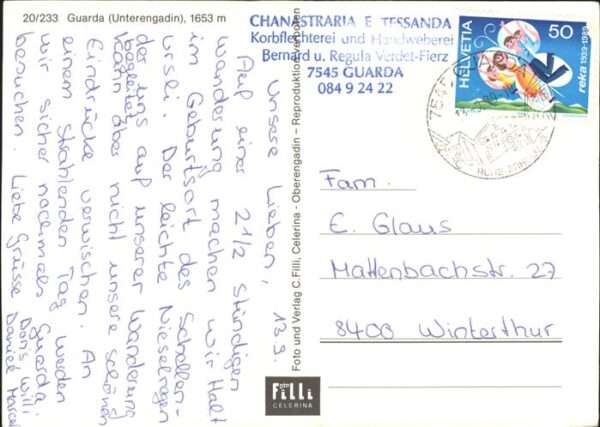 20/233 Guarda (Unterengadin), 1653 m
CHANASTRARIA E TESSANDA
Korbflechterei und Handweberei
Bernard u. Regula Verdet-Fierz
7545 GUARDA
084 9 24 22
HELVETIA
50
reka 1939-1989
13.9.
Unsere Lieben,
Auf einer 2 1/2 stündigen
Wanderung machen wir Halt
im Geburtsort des Schellen-
Ursli. Der leichte Nieselregen
der uns auf unserer Wanderung
begleitet
kann aber nicht unsere schönen
Eindrücke verwischen. An
einem strahlenden Tag werden
wir sicher nochmals Guarda
besuchen. Liebe Grüsse Doris Willi
Daniel Marcel
Foto und Verlag C. Filli, Celerina - Oberengadin – Reproduktion verboten
Fam.
E. Glaus
Mattenbachstr. 27
8400 Winterthur
Foto
Filli
CELERINA